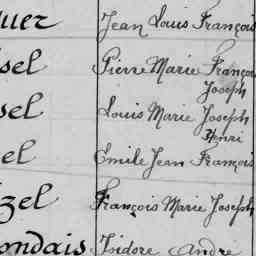 uer Jean Louis François
sel Pierre Marie François
Joseph
sel Louis Marie Joseph
Henri
el Emile Jean François
zel François Marie Joseph
ondais Isidore André